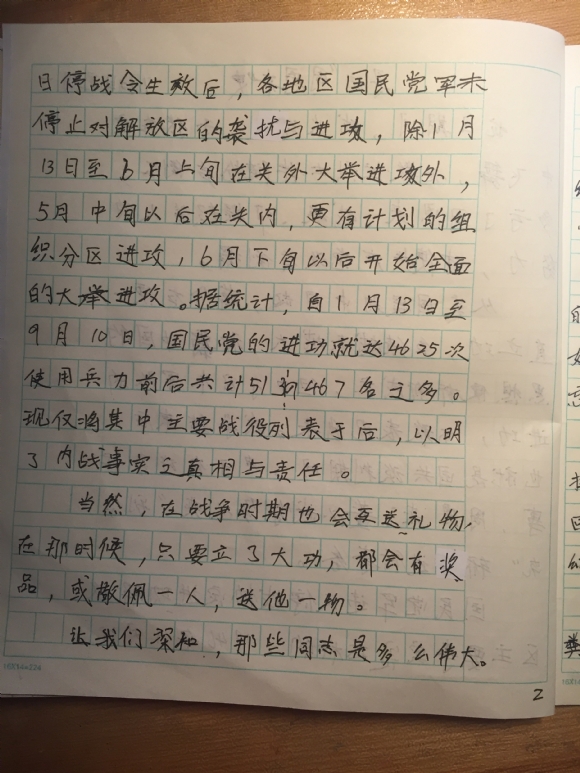 日停战令生效后，各地区国民党军未
停止对解放区的袭扰与进攻，除1月
13日至6月上旬在关外大举进攻外，
5月中旬以后在关内，更有计划的组
织分区进攻，6月下旬以后开始全面
的大举进攻。据统计，自1月13日至
9月10日，国民党的进功就达4625次
使用兵力前后共计51467名之多。
现仅将其中主要战役列表于后，以明
了内战事实之真相与责任。
当然，在战争时期也会互送礼物，
在那时候，只要立了大功，都会有奖
品，或敬佩一人，送他一物。
让我们深知，那些同志是多么伟大。
2